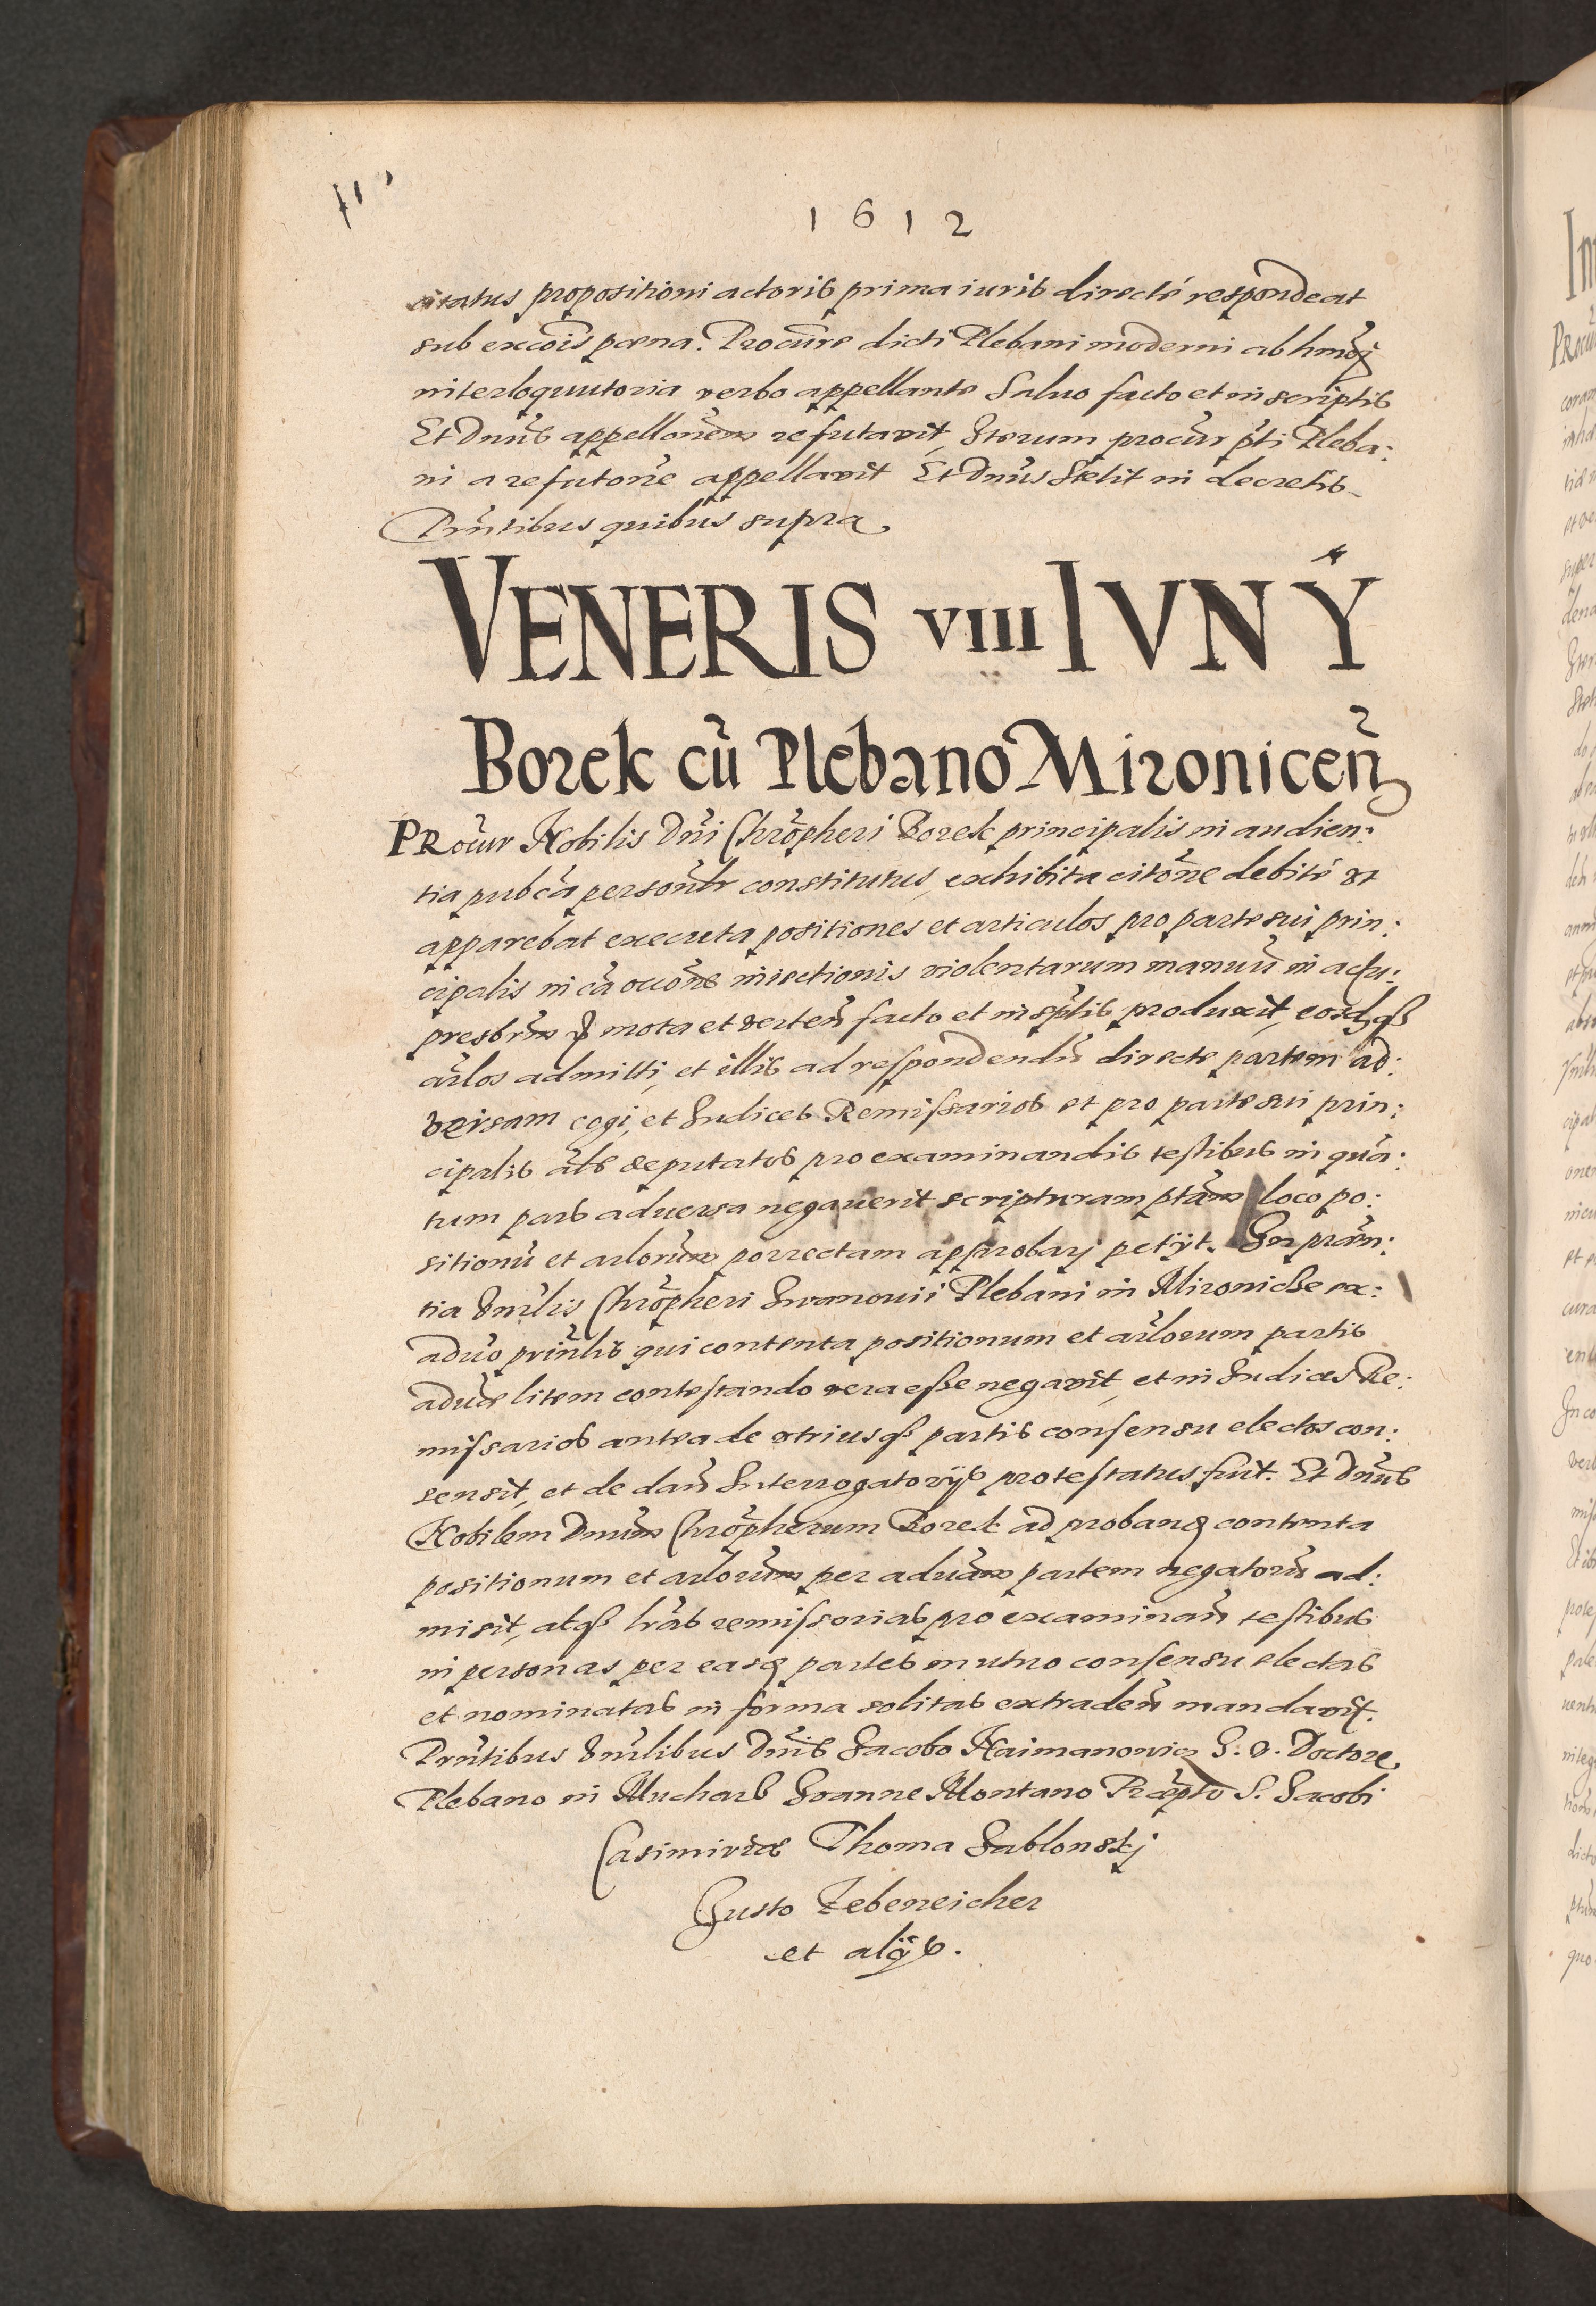 1612
citatus propositioni actoris prima iuris directé respondeat
sub excōis pœna. Procurͦe dicti Plebani moderni ab hmōi
interloquutoria verbo appellante Saluo facto et in scriptis
Et Dnūs appellonēm refutavit, Iterum procūr pti Pleba:
ni a refutone appellavit Et Dnūs stetit in decretis
Prntibus quibus supra
VENERIS VIII IVNY
Borek cū Plebano Mironiceñ
PRocūr Nobilis Dnī Chrōpheri Borek principalis in audien:
tia pubca personlr constitutus, exhibita citōne debité ut
apparebat executa positiones et articulos pro parte sui prin:
cipalis in cā occōne iniectionis violentarum manuū in
presbrm mota et verteñ facto et in sptis produxit, eosdqȝ
arlos admitti, et illis ad respondendū directe partem ad:
versam cogi, et Iudices Remissarios et pro parte sui prin:
cipalis als deputatos pro examinandis testibus in quā:
tum pars adversa negaverit scripturam ptām loco po:
sitionū et arlorum porrectam approbarj petÿt. In prǣn:
tia Vnrlis Chrōpheri Iwanouii Plebani in Mironicze ex:
aduo prinlis qui contenta positionum et arlorum partis
aduse litem contestando vera esse negavit, et in Iudices Re:
missarios antea de vtriusqȝ partis consensu electos con:
sensit, et de dañ Interrogatorÿs protestatus fuit. Et Dnūs
Nobilem Dnūm Chrōpherum Borek ad probanđ contenta
positionum et arlorum per aduām partem negatorū ad:
misit, atqȝ lrās remissorias pro examinañ testibus
in personas per easđ partes mutuo consensu electas
et nominatas in forma solitas extradeñ mandavit.
Prntibus Vnrlibus Dnīs Iacobo Naimanowicz I. V. Doctore
Plebano in Mucharz Ioanne Montano Præpto S. Iacobi
Casimiriæ Thoma Iablonskj
Iusto Zebeneicher
et alÿs.